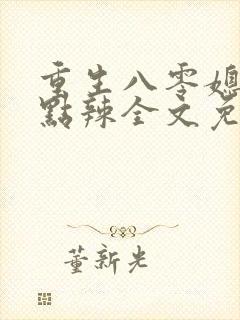 重生八零媳
點辣全文免
董新光